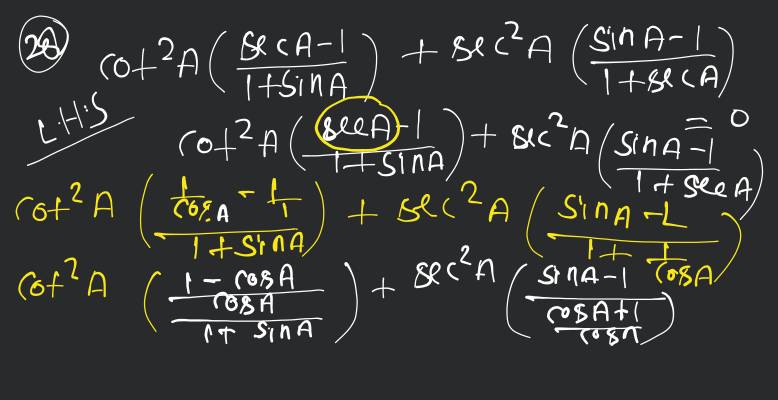 28) cot²A ( (secA-1)/(1+sinA) ) + sec²A ( (sinA-1)/(1+secA) ) = 0
L.H.S
cot²A ( (secA-1)/(1+sinA) ) + sec²A ( (sinA-1)/(1+secA) )
cot²A ( (1/cosA - 1/1)/(1+sinA) ) + sec²A ( (sinA-1)/(1+1/cosA) )
cot²A ( ((1-cosA)/cosA)/(1+sinA) ) + sec²A ( (sinA-1)/((cosA+1)/cosA) )